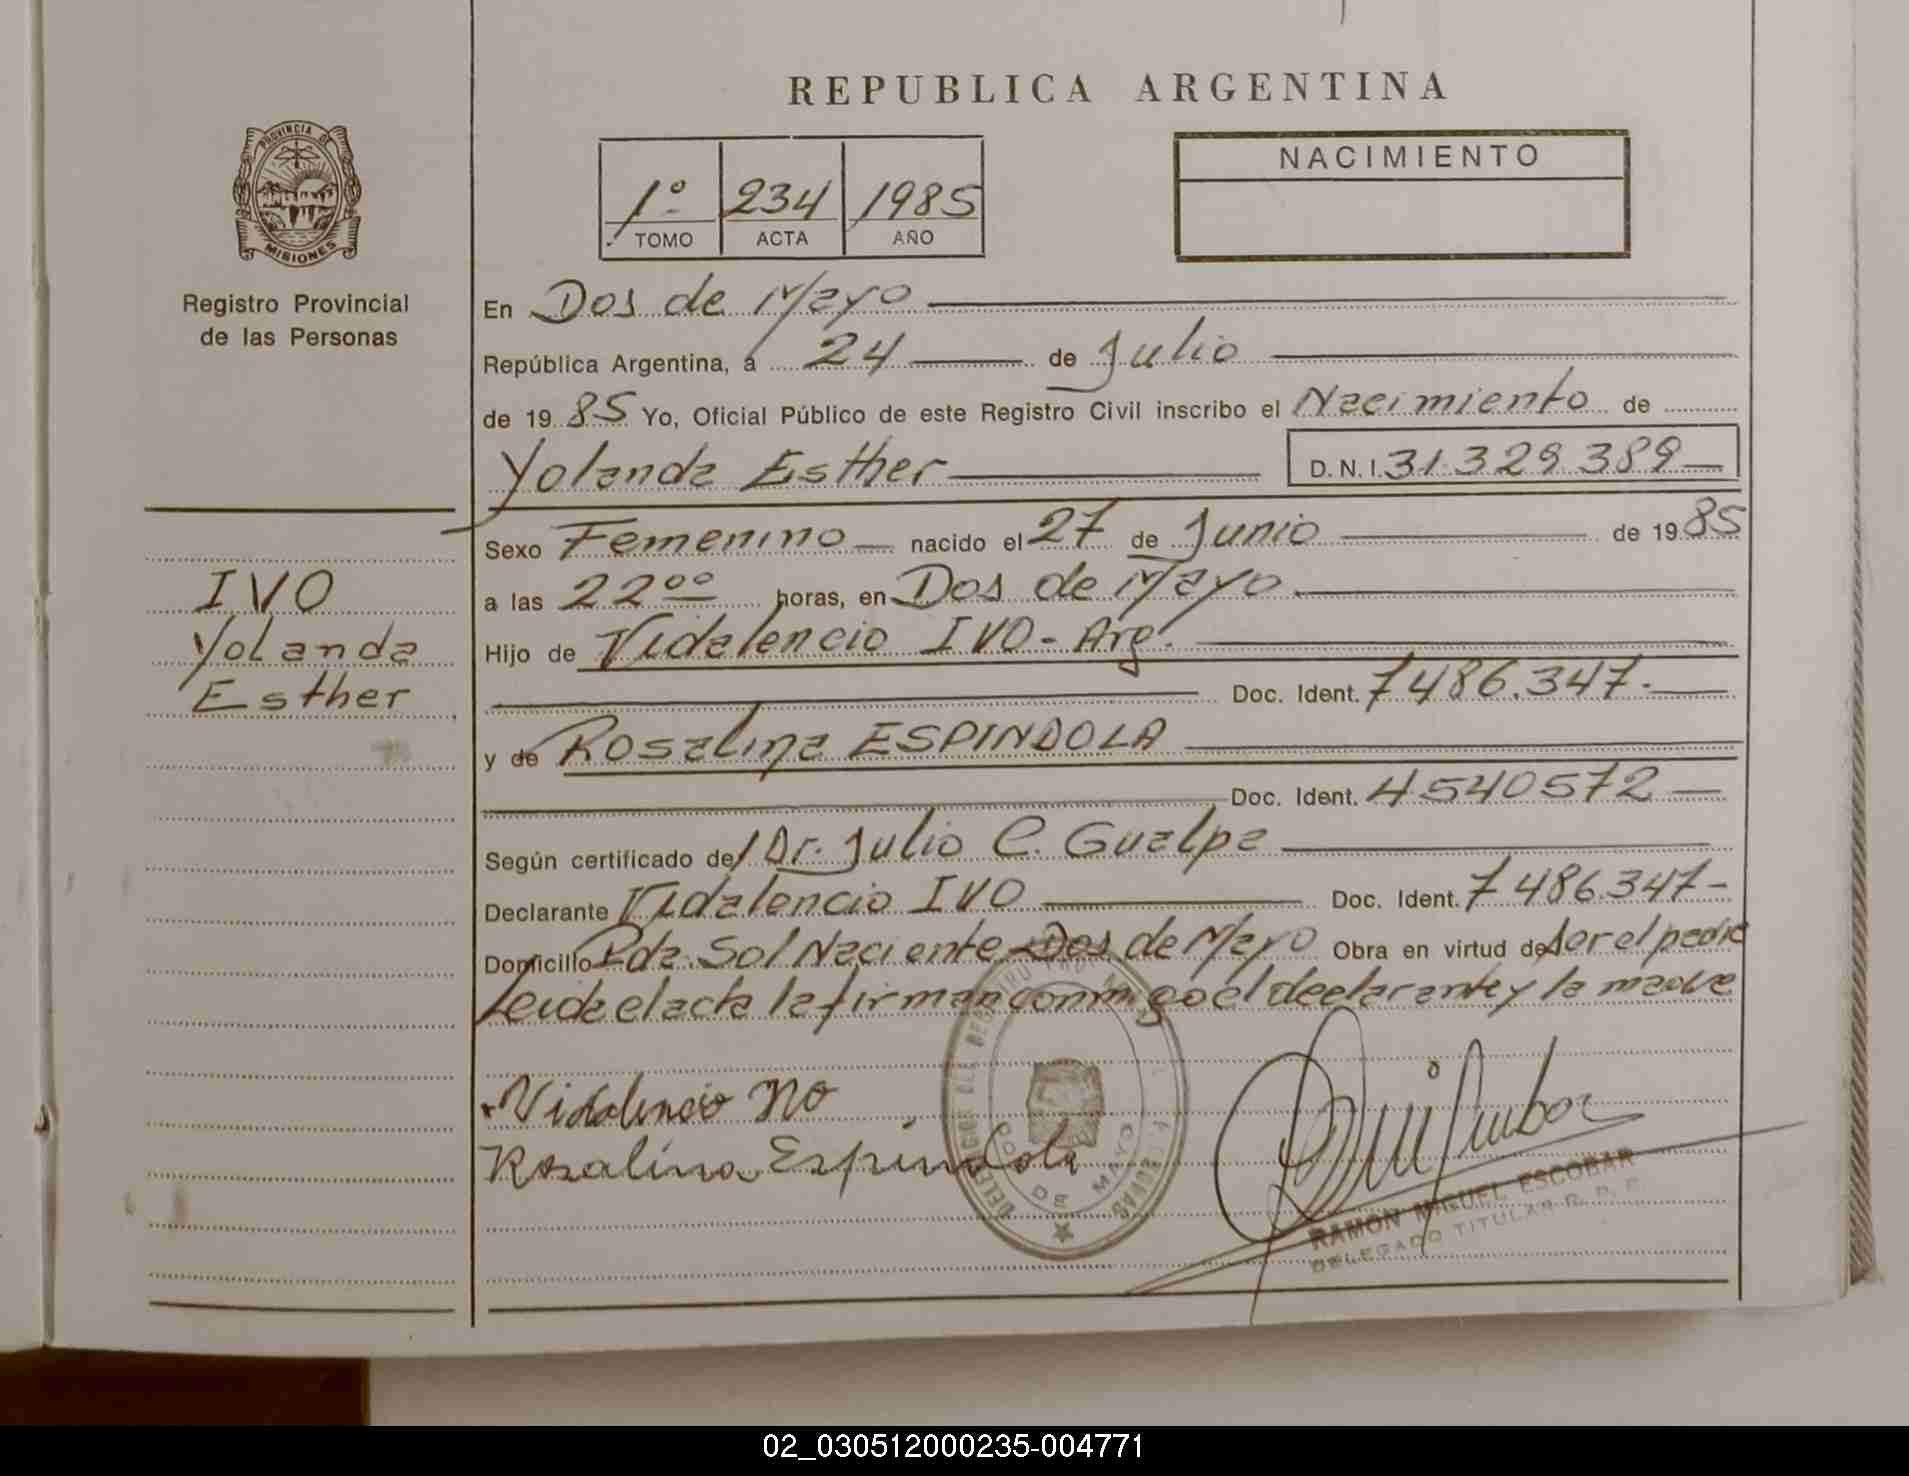 REPUBLICA ARGENTINA
PROVINCIA DE
MISIONES
Registro Provincial
de las Personas
1º 234 1985
TOMO ACTA AÑO
NACIMIENTO
En Dos de Mayo
República Argentina, a 24 de Julio
de 19 85 Yo, Oficial Público de este Registro Civil inscribo el Nacimiento de
Yolanda Esther D. N. I. 31.329.389
Sexo Femenino nacido el 27 de Junio de 19 85
a las 22 00 horas, en Dos de Mayo
Hijo de Vidalencio IVO - Arg.
Doc. Ident. 7486.347.
y de Rosalina ESPINDOLA
Doc. Ident. 4540572
Según certificado de Dr. Julio C. Gualpa
Declarante Vidalencio IVO Doc. Ident. 7486.347
Domicilio Pda. Sol Naciente Dos de Mayo Obra en virtud de ser el padre
Leida el acta la firman conmigo el declarante y la madre
IVO
Yolanda
Esther
Vidalencio IVO
Rosalina Espindola
DOS DE MAYO
RAMON MIGUEL ESCOBAR
DELEGADO TITULAR R. P. P.
02_030512000235-004771